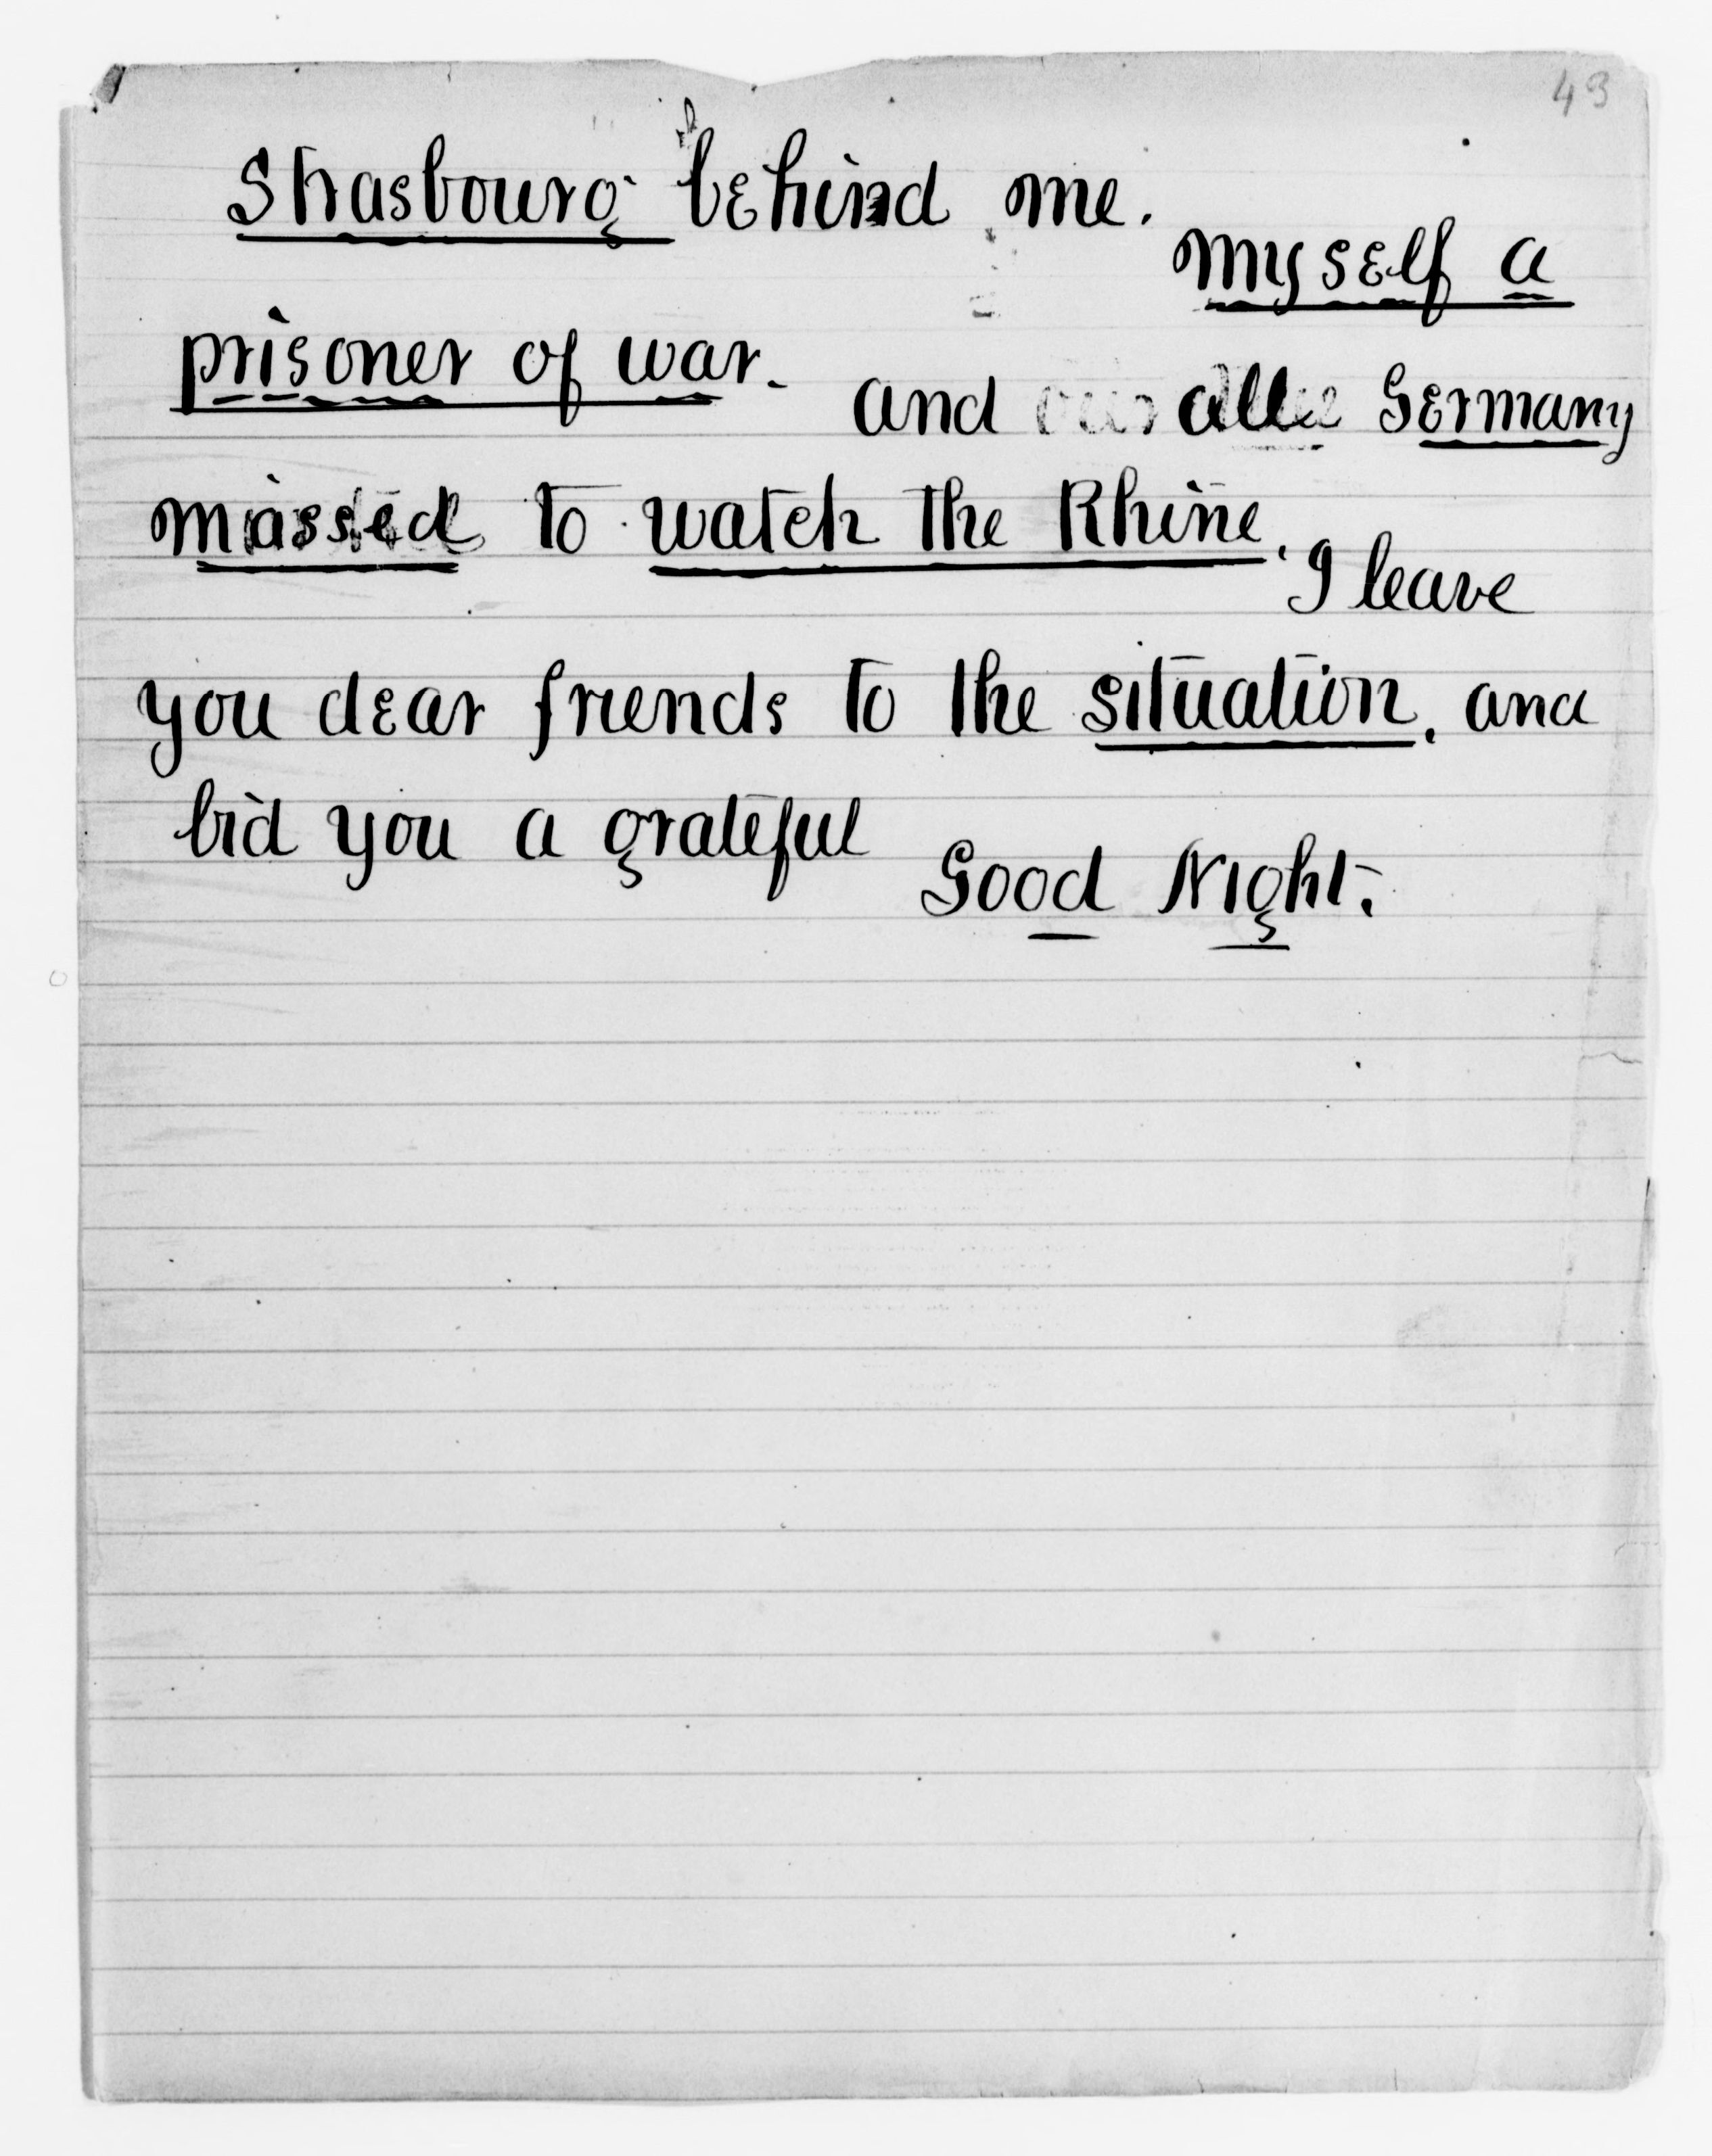 43
Strasbourg behind me.
myself a
prisoner of war.
and all Germany
massed to watch the Rhine.
I leave
you dear friends to the situation. and
bid you a grateful
Good Night.